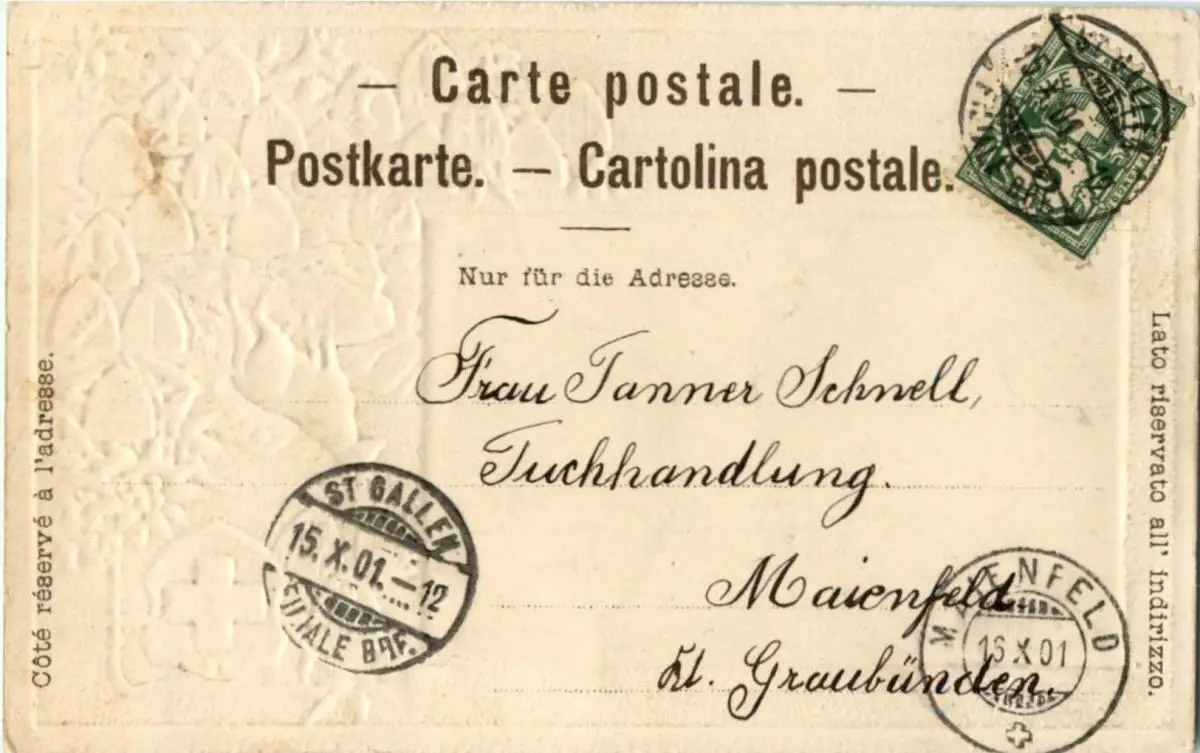 — Carte postale. —
Postkarte. — Cartolina postale.
Nur für die Adresse.
Côté réservé à l'adresse.
Lato riservato all' indirizzo.
Frau Tanner Schnell,
Tuchhandlung.
Maienfeld
Kt. Graubünden.
ST GALLEN
15. X. 01. — 12
FILIALE BRF.
MAIENFELD
16 X 01